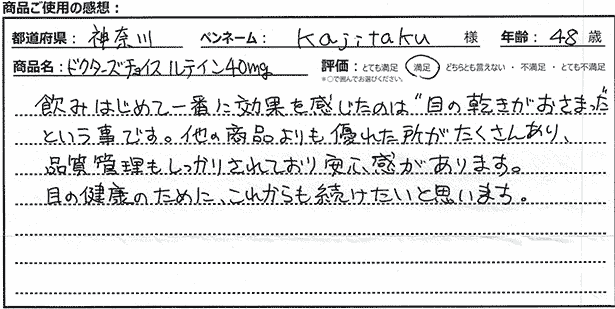 商品ご使用の感想：
都道府県： 神奈川 ペンネーム： kajitaku 様 年齢： 48 歳
商品名： ドクターズチョイス ルテイン40mg 評価： とても満足 ・ 満足 ・ どちらとも言えない ・ 不満足 ・ とても不満足
※○で囲んでお選びください。
飲みはじめて一番に効果を感じたのは"目の乾きがおさまった"
という事です。他の商品よりも優れた所がたくさんあり、
品質管理もしっかりされており安心感があります。
目の健康のために、これからも続けたいと思います。